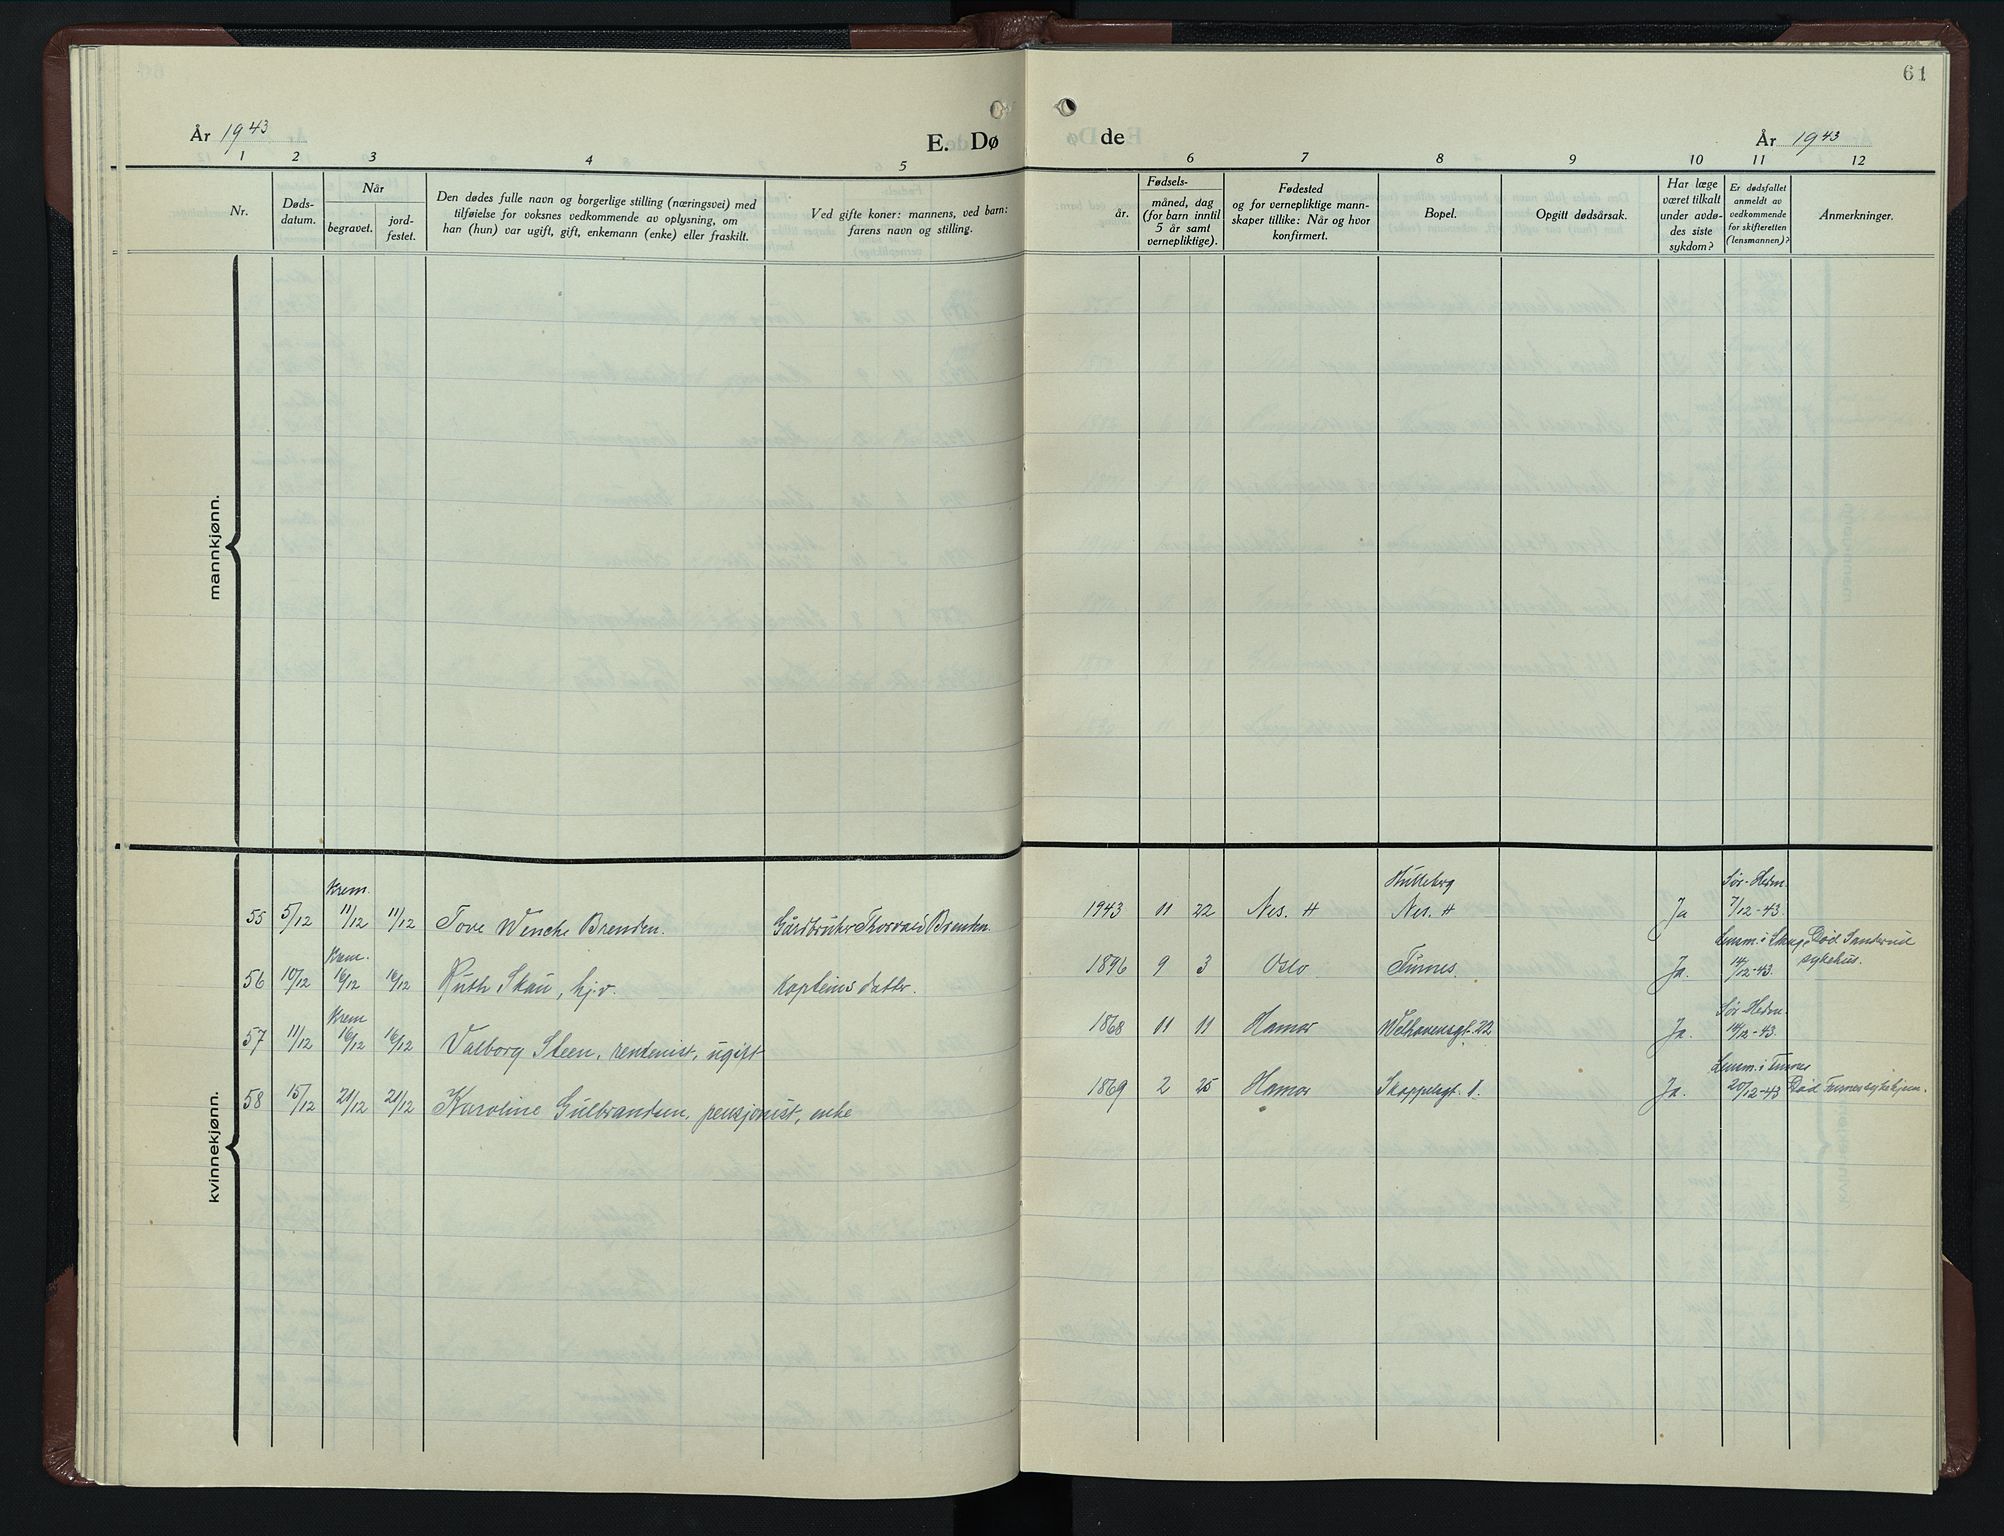 61
År 1943
E. Dø
de
År 1943
1 2 3 4 5 6 7 8 9 10 11 12
Nr.
Døds-
datum.
Når
begravet.
jord-
festet.
Den dødes fulle navn og borgerlige stilling (næringsvei) med
tilføielse for voksnes vedkommende av oplysning, om
han (hun) var ugift, gift, enkemann (enke) eller fraskilt.
Ved gifte koner: mannens, ved barn:
farens navn og stilling.
Fødsels-
år.
måned, dag
(for barn inntil
5 år samt
vernepliktige).
Fødested
og for vernepliktige mann-
skaper tillike: Når og hvor
konfirmert.
Bopel.
Opgitt dødsårsak.
Har læge
været tilkalt
under avdø-
des siste
sykdom?
Er dødsfallet
anmeldt av
vedkommende
for skifteretten
(lensmannen)?
Anmerkninger.
mannkjønn.
kvinnekjønn.
Krem. Hulleberg Sør-Hedm.
55 5/12 11/12 11/12 Tove Wenche Brenden. Gårdbruker Thorvald Brenden. 1943 11 22 Nes. H Nes. H Ja 7/12-43.
Krem. Lensm. i Død Sanderud
56 10/12 16/12 16/12 Ruth Skau, hj.v. Kapteins datter. 1896 9 3 Oslo Furnes. Ja. 14/12-43. sykehus.
Krem Sør-Hedm.
57 11/12 16/12 16/12 Valborg Steen, rentenist, ugift 1868 11 11 Hamar Welhavensgt. 22 Ja. 14/12-43.
Lensm. i Furnes
58 15/12 21/12 21/12 Karoline Gulbrandsen, pensjonist, enke 1869 2 25 Hamar Skappelsgt. 1. Ja. 20/12-43 Død Furnes sykehjem.